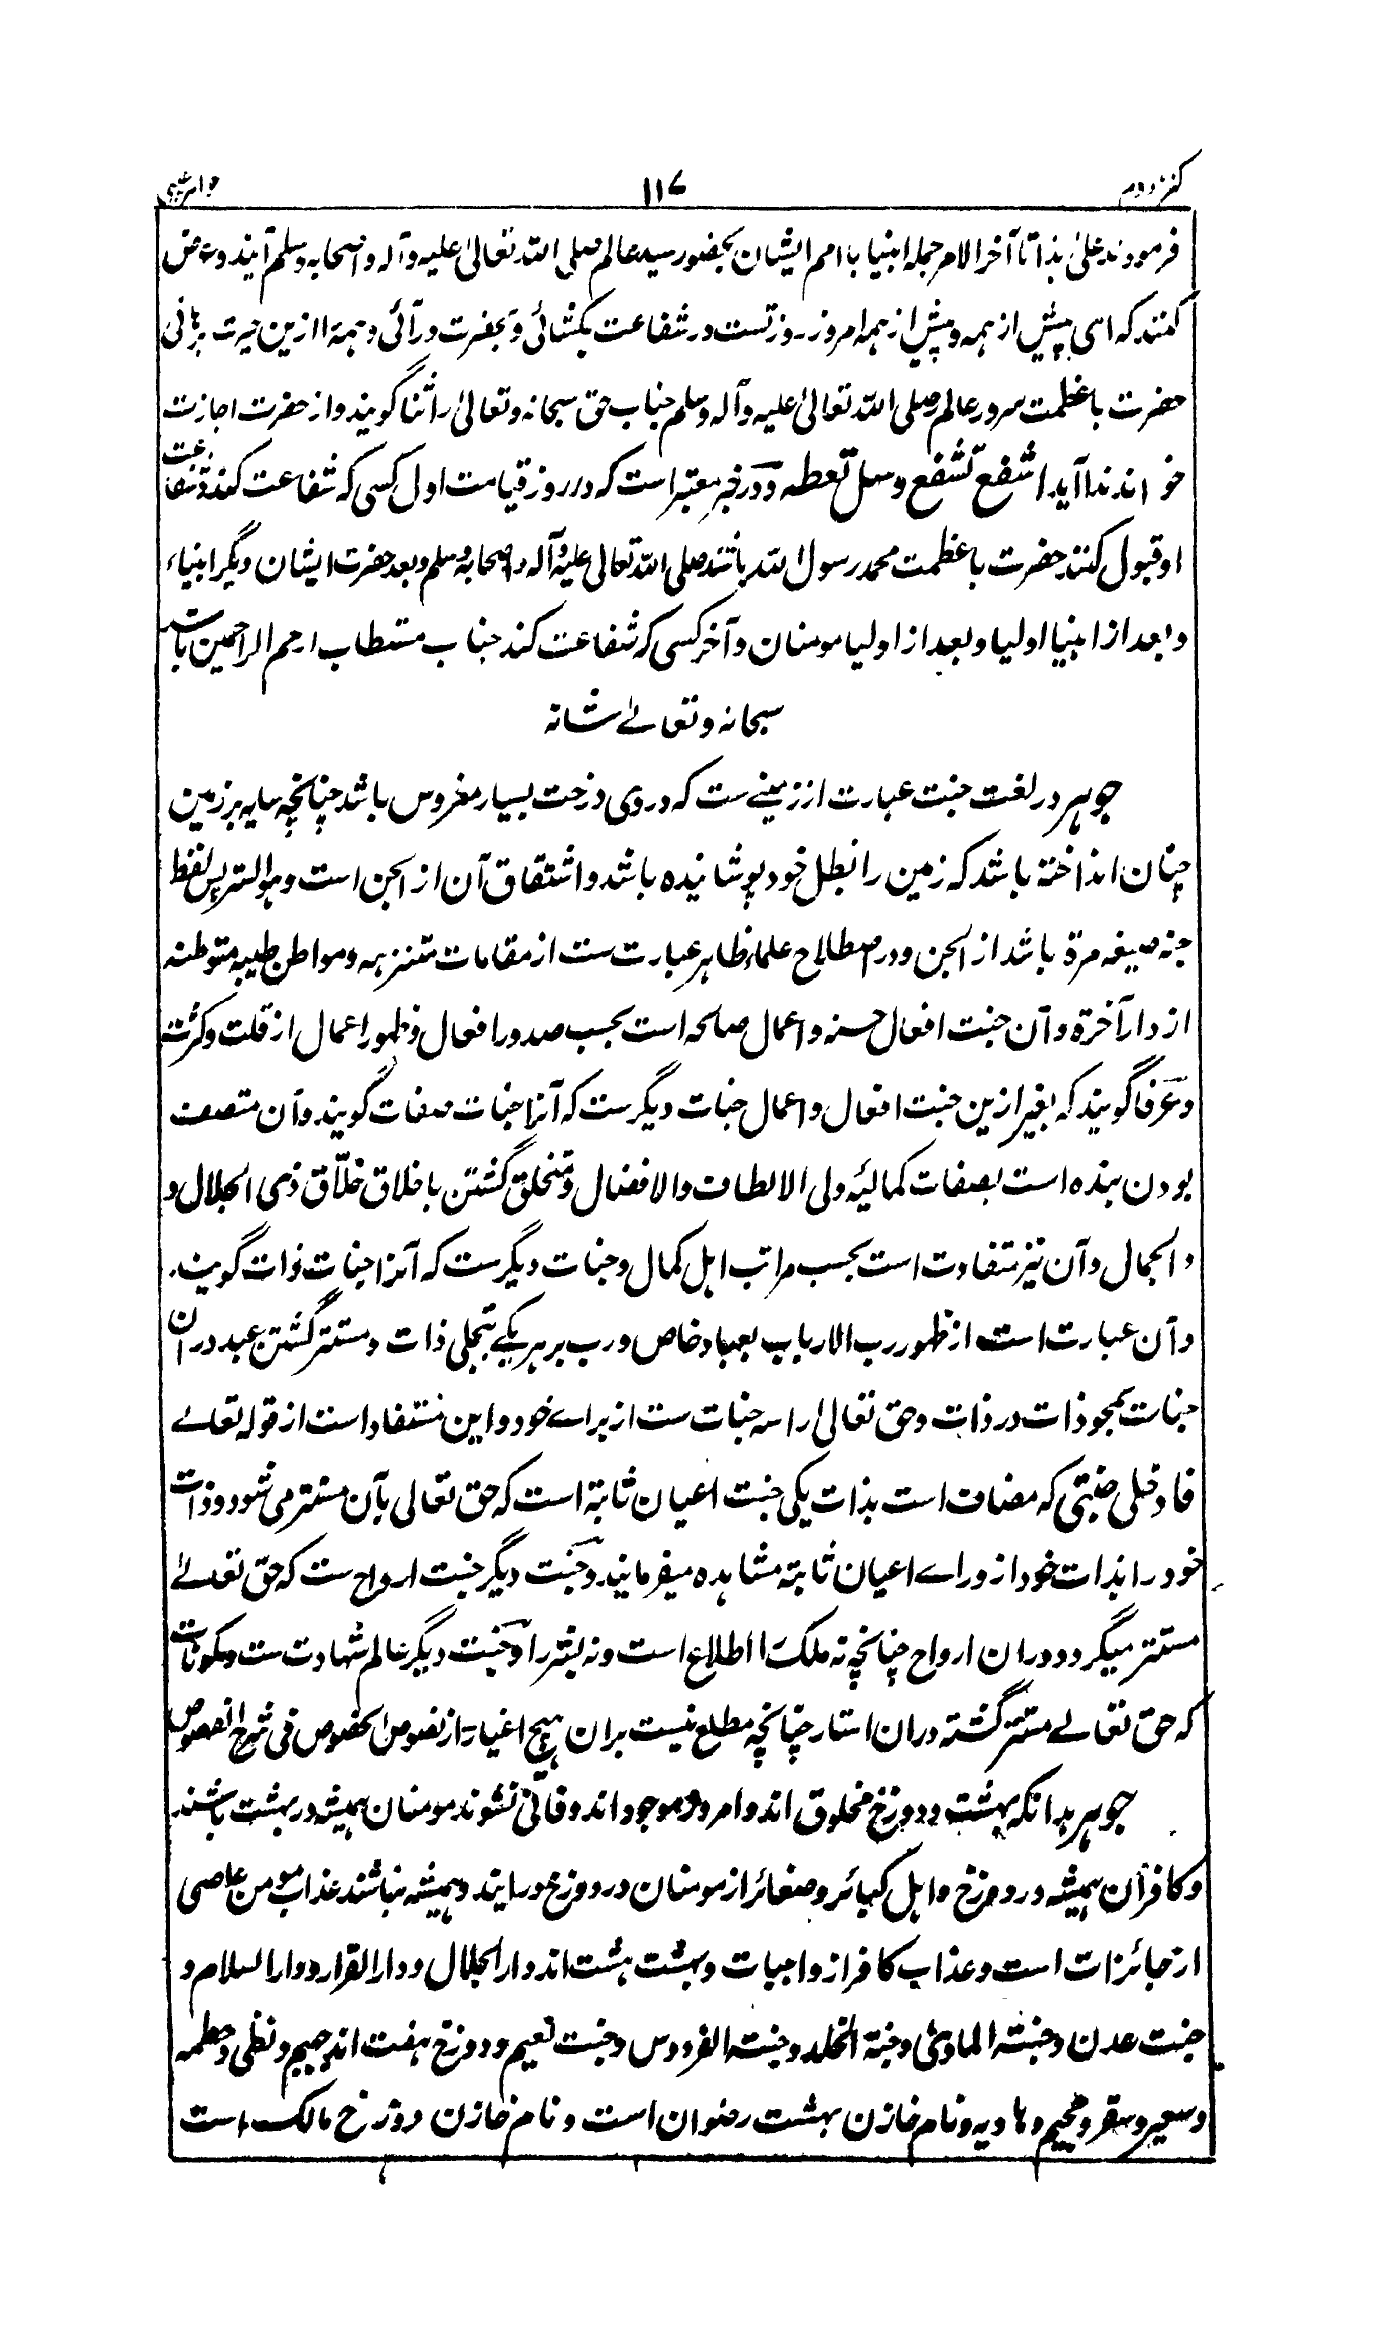 کنز دوم ۱۱۷ جواهر غیبی
فرمودند علیٰ ہذا تا آخر الامر جملہ انبیا با امم ایشان بحضور سید عالم صلی اللہ تعالیٰ علیہ وآلہ واصحابہ وسلم آیند وعرض
کنند کہ ای پیش از ہمہ وبیش از ہمہ امروز روز تست در شفاعت بکشائی وبحضرت در آئی وہمہ را ازین حیرت برہانی
حضرت با عظمت سرور عالم صلی اللہ تعالیٰ علیہ وآلہ وسلم جناب حق سبحانہ وتعالیٰ را ثنا گویند واز حضرت اجازت
خواہند ندا آید اشفع تشفع وسل تعطہ ودر خبر معتبر است کہ در روز قیامت اول کسی کہ شفاعت کند وشفاعت
او قبول کنند حضرت با عظمت محمد رسول اللہ باشند صلی اللہ تعالی علیہ وآلہ واصحابہ وسلم وبعد حضرت ایشان دیگر انبیاء
وبعد از انبیا اولیا وبعد از اولیا مومنان وآخر کسی کہ شفاعت کند جناب مستطاب ارحم الراحمین باشد
سبحانہ وتعالے شانہ
جوہر در لغت جنت عبارت از زمینے ست کہ در وی درخت بسیار مغروس باشد چنانچہ سایہ بر زمین
چنان انداختہ باشد کہ زمین را بظل خود پوشانیدہ باشد واشتقاق آن از الجن است وہو الستر پس لفظ
جنہ صیغہ مرۃ باشد از الجن ودر اصطلاح علماء ظاہر عبارت ست از مقامات متنزہہ ومواطن طیبہ متوطنہ
از دار آخرۃ وآن جنت افعال حسنہ واعمال صالحہ است بحسب صدور افعال وظہور اعمال از قلت وکثرت
وعرفا گویند کہ بغیر ازین جنت افعال واعمال جنات دیگر ست کہ آنرا جنات صفات گویند وآن متصف
بودن بندہ است بصفات کمالیہ ولی الالطاف والافضال ومتخلق گشتن باخلاق خلّاق ذی الجلال و
والجمال وآن نیز متفاوت است بحسب مراتب اہل کمال وجنات دیگر ست کہ آنرا جنات ذات گویند
وآن عبارت است از ظہور رب الارباب بعباد خاص ورب بر ہر یکے بتجلی ذات ومستتر گشتن عبد در ان
جنات بمحو ذات در ذات وحق تعالیٰ را سہ جنات ست از براے خود واین مستفاد است از قولہ تعالے
فادخلی جنتی کہ مضاف است بذات یکی جنت اعیان ثابتۃ است کہ حق تعالی بآن مستتر می شود وذات
خود را بذات خود از وراے اعیان ثابتہ مشاہدہ میفرماید وجنت دیگر جنت ارواح ست کہ حق تعالےٰ
مستتر میگردد در ان ارواح چنانچہ نہ ملک را اطلاع است ونہ بشر را وجنت دیگر عالم شہادت ست ومکونات
کہ حق تعالے مستتر گشتہ در ان استار چنانچہ مطلع نیست بر ان ہیچ اغیار از نصوص الخصوص فی شرح الفصوص
جوہر بدانکہ بہشت ودوزخ مخلوق اند وامروز موجود اند وفانی نشوند مومنان ہمیشہ در بہشت باشند
وکافران ہمیشہ در دوزخ واہل کبائر وصغائر از مومنان در دوزخ در ایند وہمیشہ نباشند عذاب مومن عاصی
از جائزات است وعذاب کافر از واجبات وبہشت ہشت اند دار الجلال ودار القرار ودار السلام و
جنت عدن وجنتہ الماویٰ وجنتہ الخلد وجنتہ الفردوس وجنت نعیم ودوزخ ہفت اند جہیم ولظی وحطمہ
وسعیر وسقر وجحیم وہاویہ ونام خازن بہشت رضوان است ونام خازن دوزخ مالک است